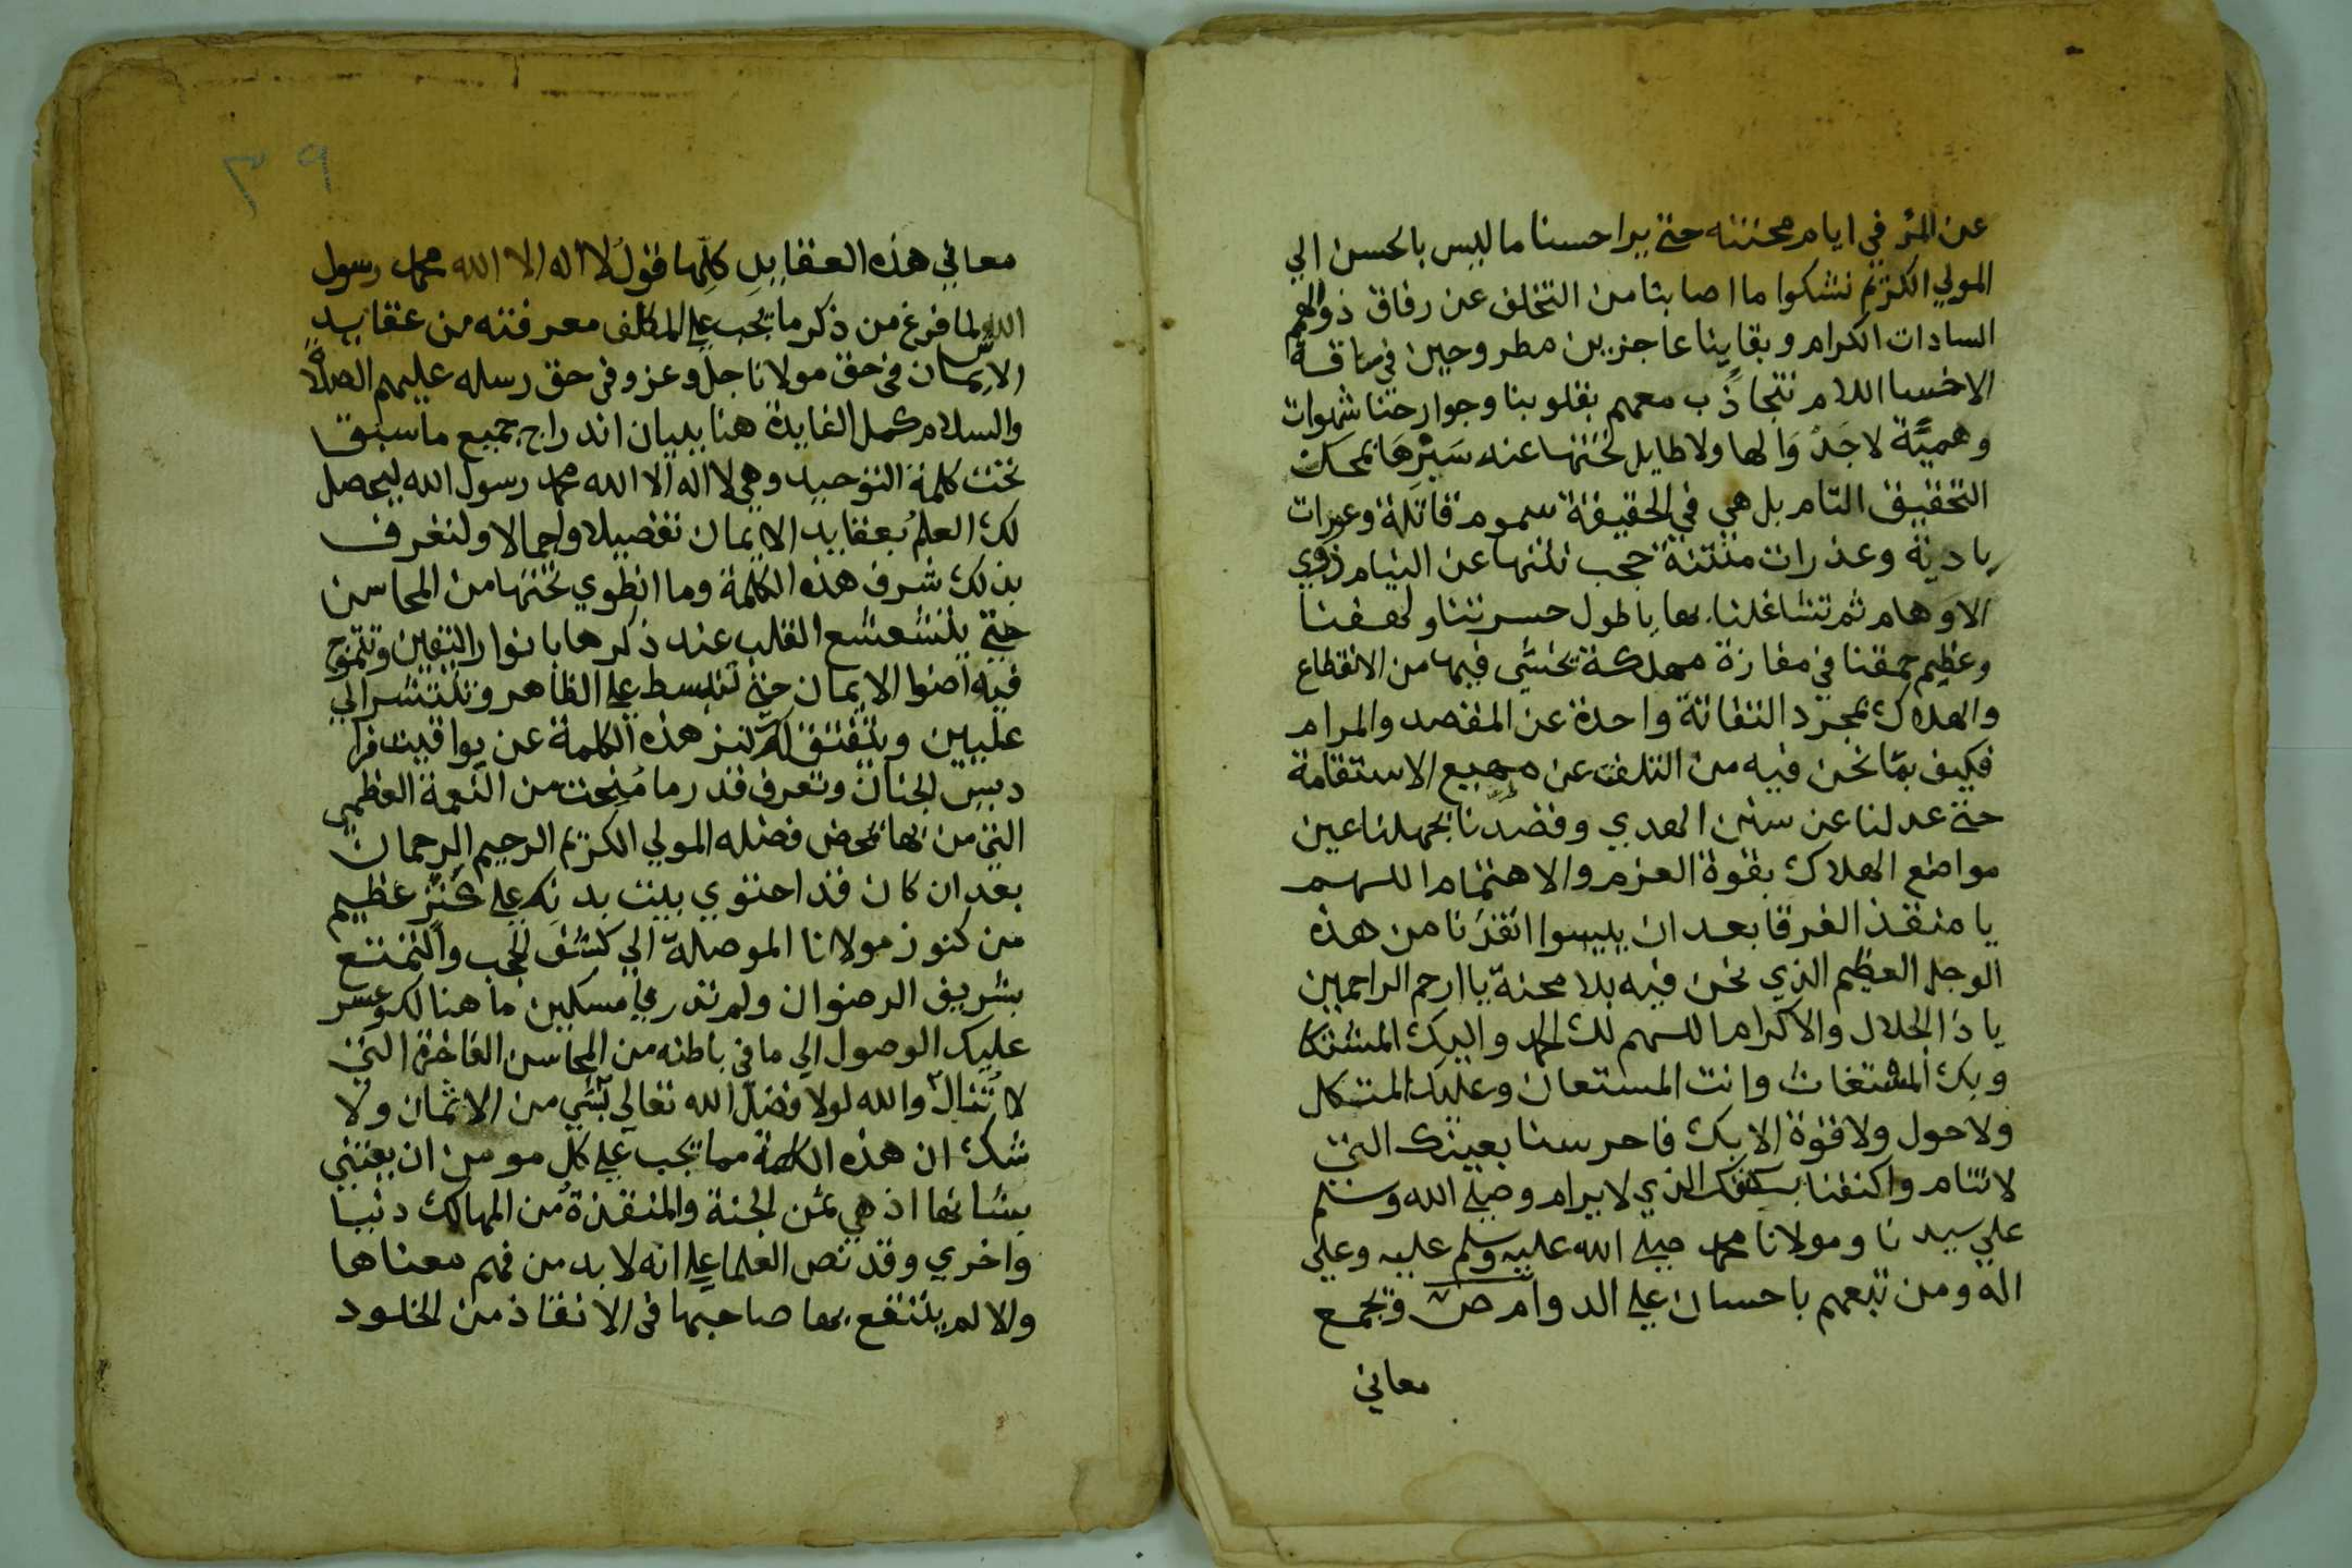 عن المر في ايام محنته حتي يرا حسنا ما ليس بالحسن الي
المولي الكريم نشكوا ما اصابنا من التخلف عن رفاق ذو الهمم
السادات الكرام وبقاينا عاجزين مطروحين في ساقة
الاخسا اللام نتجاذب معهم بقلوبنا وجوارحنا شهوات
وهميّة لا جَدْوَا لها ولا طايل تحتها عند سَبْرِهَا بمحك
التحقيق التام بل هي في الحقيقة سموم قاتلة وعورات
بادية وعذرات منتنة حجب نتنها عن النيام ذوي
الاوهام ثم تشاغلنا بها يا طول حسرتنا ولهفنا
وعظيم حمقنا في مفازة مهلكة يخشي فيها من الانقطاع
والهلاك بمجرد التفاتة واحدة عن المقصد والمرام
فكيف بما نحن فيه من التلفت عن مهيع الاستقامة
حتي عدلنا عن سنن الهدي وقصدنا بجهلنا عين
مواضع الهلاك بقوة العزم والاهتمام اللهم
يا منقذ الغرقا بعد ان ييسوا انقذنا من هذه
الوحل العظيم الذي نحن فيه بلا محنة يا ارحم الراحمين
يا ذا الجلال والاكرام اللهم لك الحمد واليك المشتكا
وبك المستغاث وانت المستعان وعليك المتكل
ولا حول ولا قوة الا بك فاحرسنا بعينك التي
لا تنام واكنفنا بكنفك الذي لا يرام وصلي الله وسلم
علي سيدنا ومولانا محمد صلي الله عليه وسلم عليه وعلي
اله ومن تبعهم باحسان علي الدوام ص ويجمع
معاني
٣٩
معاني هذه العقايد كلّها قولُ لا اله الا الله محمد رسول
الله ش لما فرغ من ذكر ما يجب علي المكلف معرفته من عقايد
الايمان في حق مولانا جل وعز وفي حق رسله عليهم الصلاة
والسلام كمل الفايدة هنا ببيان اندراج جميع ما سبق
تحت كلمة التوحيد وهي لا اله الا الله محمد رسول الله ليحصل
لك العلم بعقايد الايمان تفصيلا واجمالا ولتعرف
بذلك شرف هذه الكلمة وما انطوي تحتها من المحاسن
حتي يتشعشع القلب عند ذكرها بانوار اليقين وتتموج
فيه اضوا الايمان حتي تنبسط علي الظاهر وتنتشر الي
عليين وينفتق لك كنز هذه الكلمة عن يواقيت فرا
ديس الجنان وتعرف قدر ما مُنِحت من النعمة العظمي
التي من بها بمحض فضله المولي الكريم الرحيم الرحمان
بعد ان كان قد احتوي بيت بدنك علي كنز عظيم
من كنوز مولانا الموصلة الي كشف الحجب والتمتع
بشريف الرضوان ولم تدر يا مسكين ما هنالك وعسر
عليك الوصول الي ما في باطنه من المحاسن الفاخرة التي
لا تُنال والله لولا فضل الله تعالي بشي من الاثمان ولا
شك ان هذه الكلمة مما يجب علي كل مومن ان يعتني
بشانها اذ هي ثمن الجنة والمنقذة من المهالك دنيا
واخري وقد نص العلما علي انه لا بد من فهم معناها
والا لم ينتفع بها صاحبها في الانقاذ من الخلود